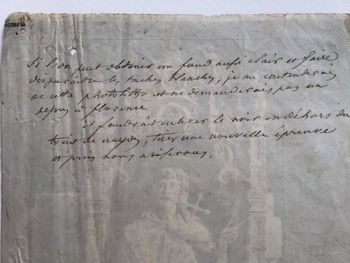 Si l'on peut obtenir un fond aussi clair et faire
disparaître les taches blanches, je me contenterai
de cette photolitho et ne demanderais pas un
report à
il faudrait enlever le noir en dehors du
trait de crayon, tirer une nouvelle épreuve
et puis nous aviserons.